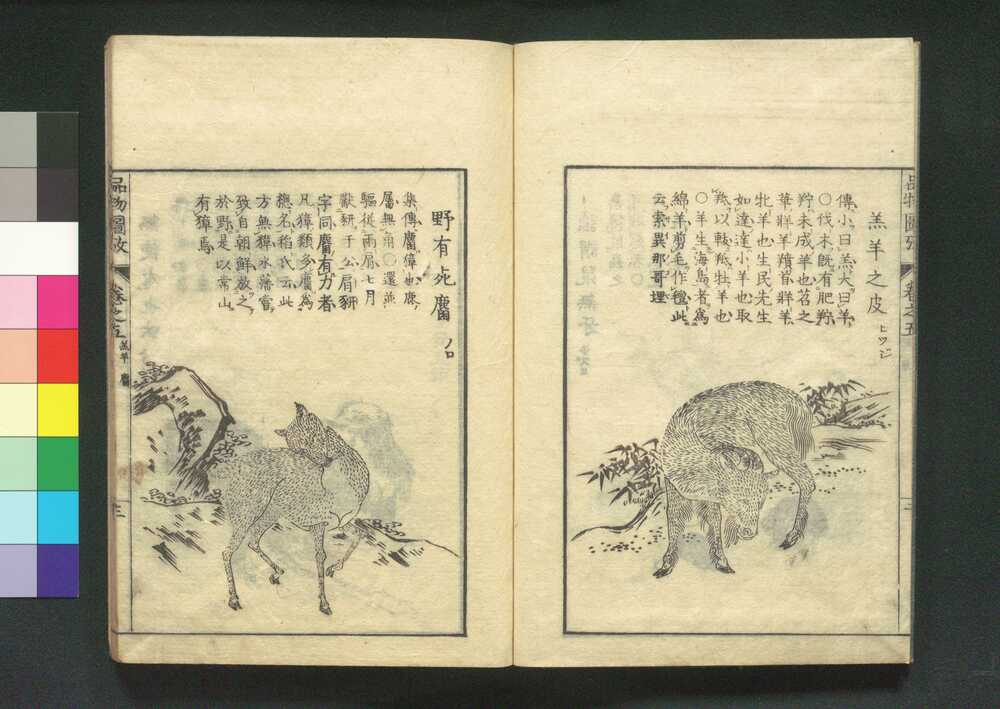 羔羊之皮 ヒツジ
傳小曰羔大曰羊
○伐木既有肥羜
羜未成羊也苕之
華牂羊羵首牂羊
牝羊也生民先生
如達達小羊也取
羝以軷羝牡羊也
○羊生海島者為
綿羊剪毛作氊此
云索異那哥埋
品物圖攷
卷之五
野有死麕 ノロ
集傳麕獐也鹿
屬無角○還並
驅從兩肩七月
獻豜于公肩豜
字同麕有力者
凡獐類多麕為
總名稻氏云此
方無獐水藩嘗
致自朝鮮放之
於野是以常山
有獐焉
品物圖攷
卷之五
羔羊 麕
三